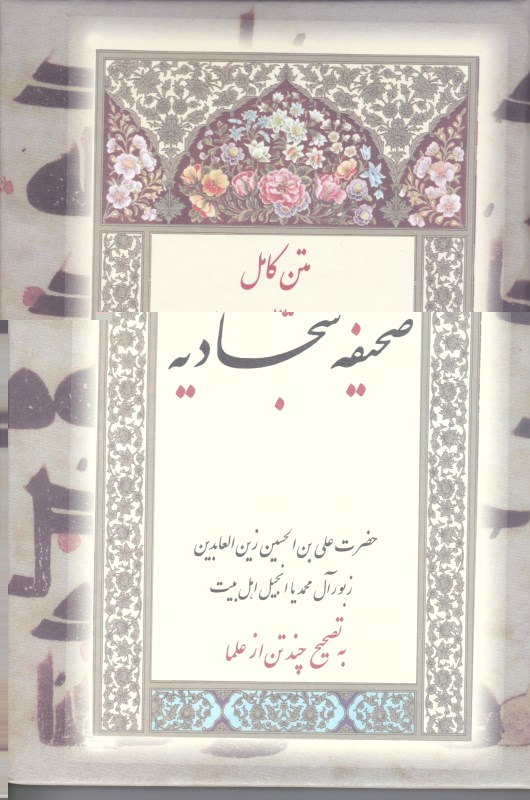 متن کامل
صحیفه سجادیه
حضرت علی بن الحسین زین العابدین
زبور آل محمد یا انجیل اهل بیت
به تصحیح چند تن از علما